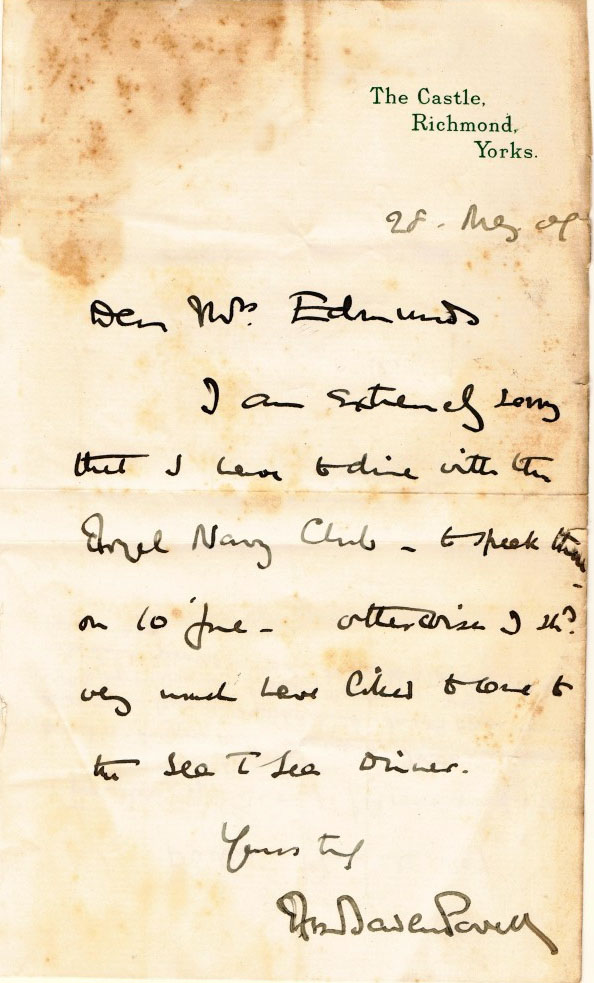 The Castle,
Richmond,
Yorks.
28. May 09
Dear Mrs. Edmunds
I am extremely sorry
that I have to dine with the
Royal Navy Club – to speak there –
on 10 June – otherwise I shd.
very much have liked to come to
the Sea T Sea Dinner.
Yours try
RBaden Powell